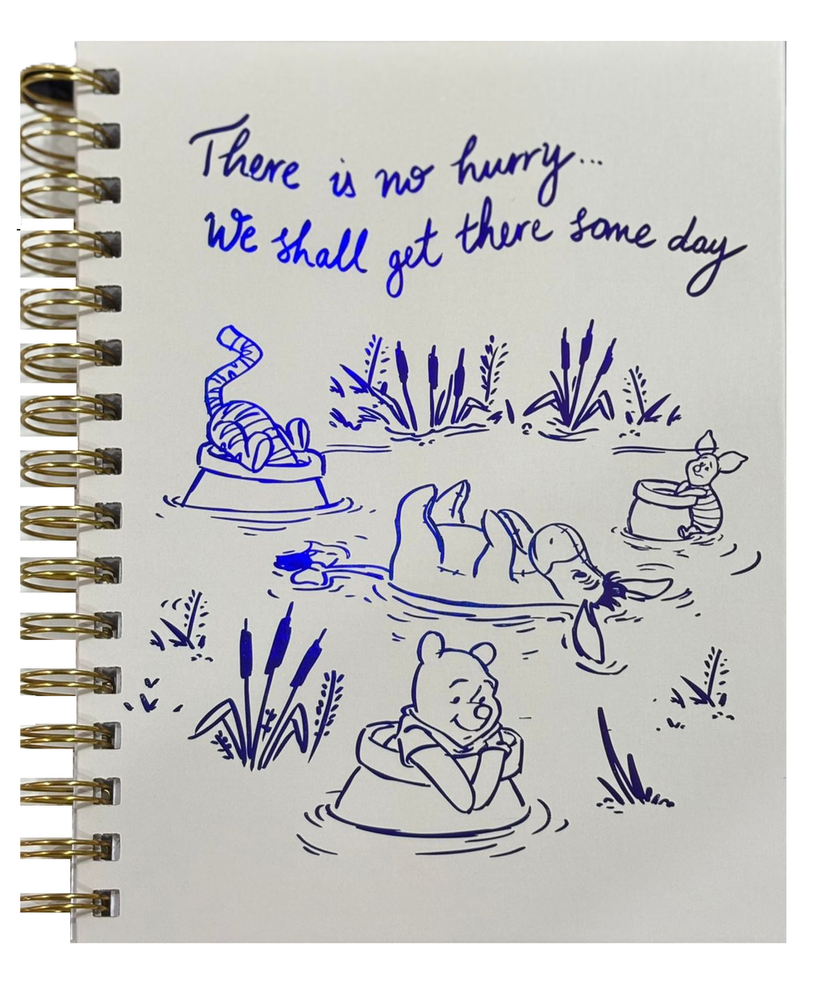 There is no hurry...
We shall get there some day